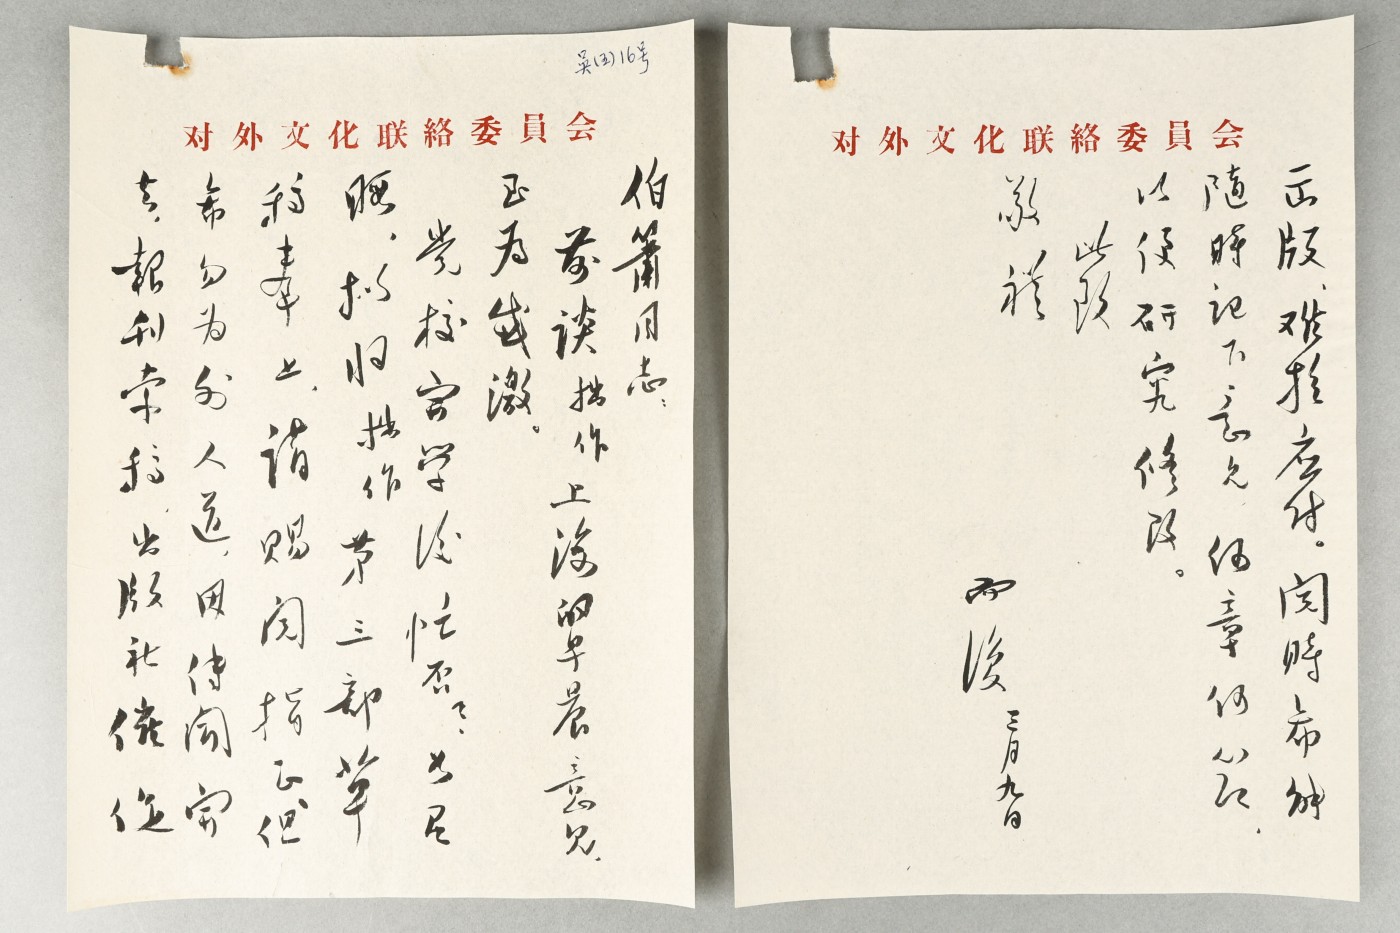 吴(函)16号
对外文化联絡委員会
伯簫同志:
前谈拙作上海的早晨意见,
至为感激。
党校开学后忙否?如有
暇,拟将拙作第三部草
稿奉上,请赐阅指正但
希勿为外人道,因传闻开
去,報刊索稿,出版社催促
对外文化联絡委員会
出版,难于应付。阅时希能
随時记下意见,何章何节,
以便研究修改。
此致
敬礼
而復
三月九日